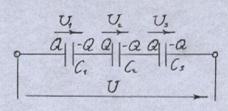 U₁ U₂ U₃
Q -Q Q -Q Q -Q
C₁ C₂ C₃
U